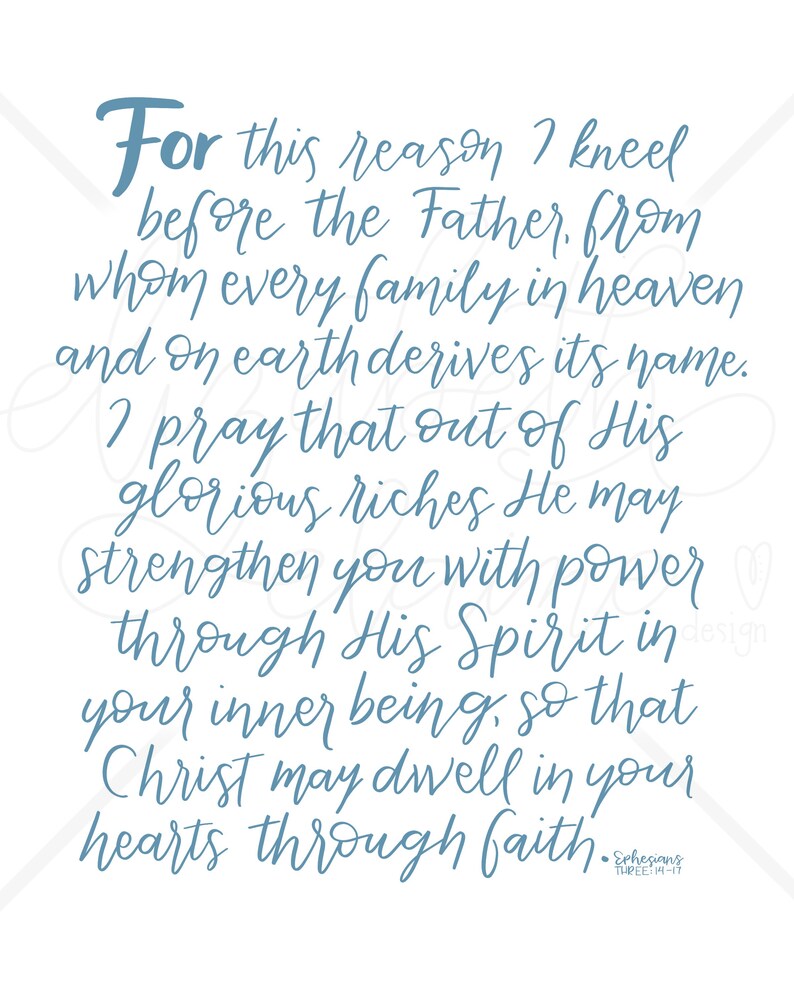 For this reason I kneel
before the Father, from
whom every family in heaven
and on earth derives its name.
I pray that out of His
glorious riches He may
strengthen you with power
through His Spirit in
your inner being, so that
Christ may dwell in your
hearts through faith.
Ephesians
THREE:14-17
design